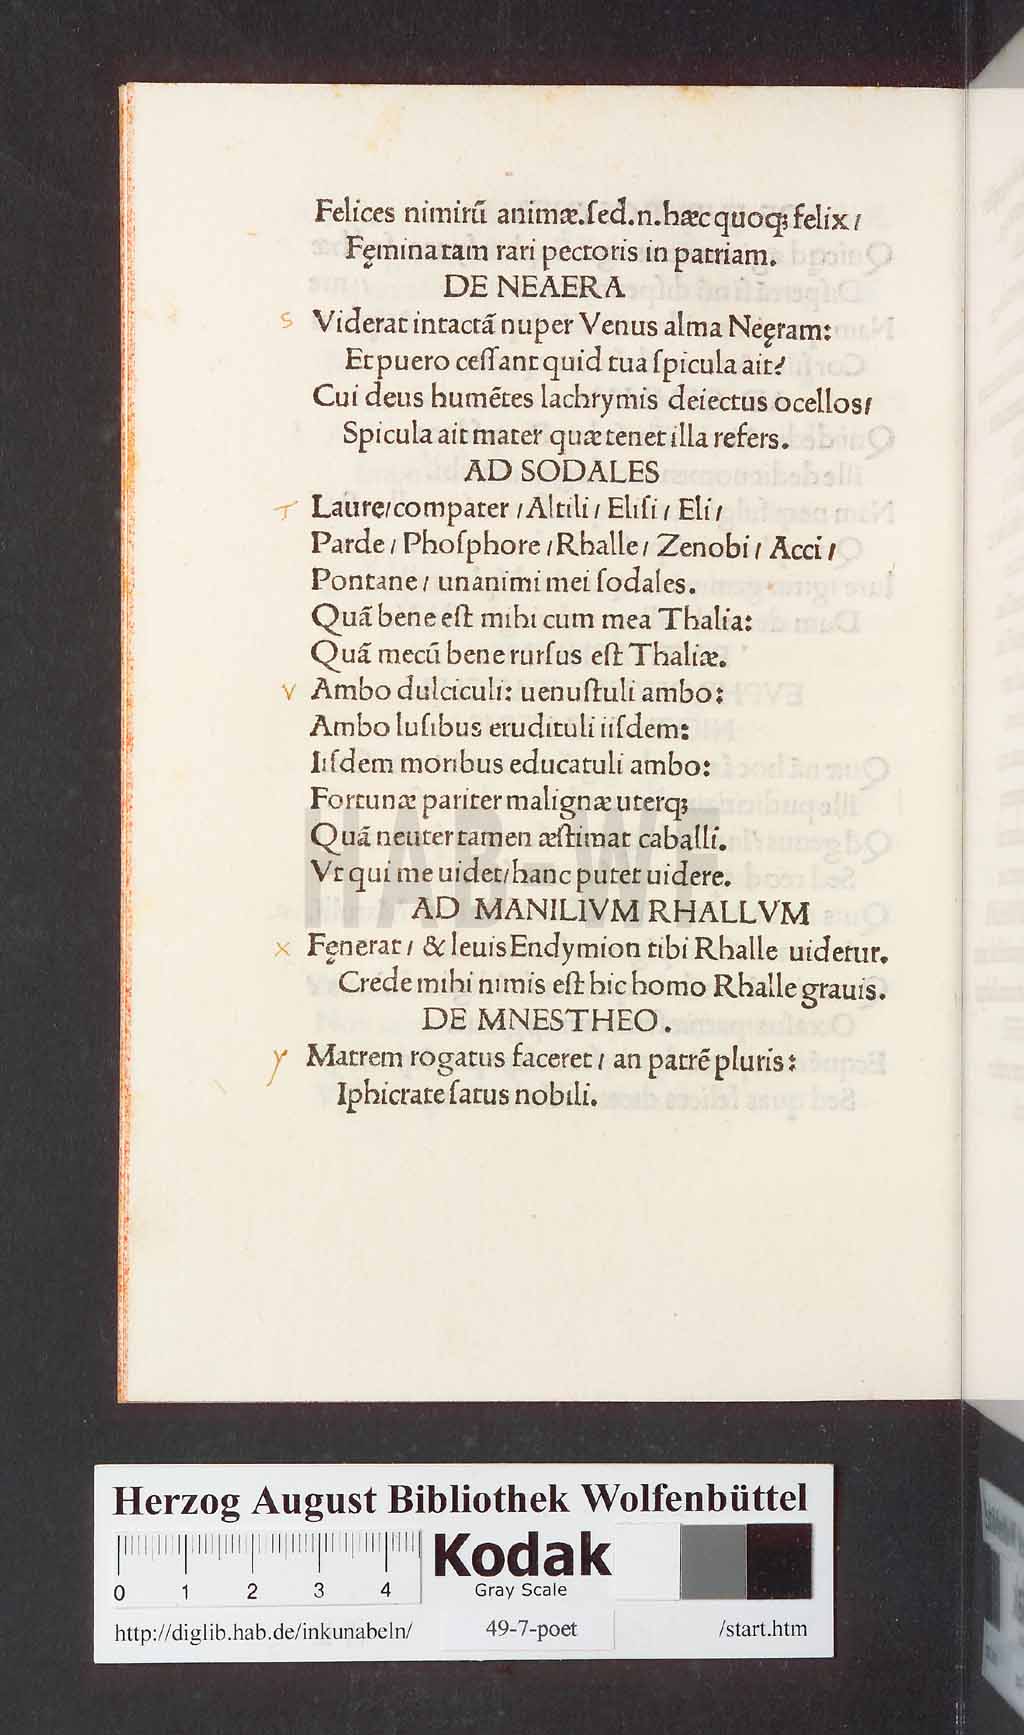 Felices nimirū animæ.ſed.n.hæc quoq; felix /
Fęmina tam rari pectoris in patriam.
DE NEAERA
s Viderat intactā nuper Venus alma Neęram:
Et puero ceſſant quid tua ſpicula ait?
Cui deus humētes lachrymis deiectus ocellos/
Spicula ait mater quæ tenet illa refers.
AD SODALES
T Laure/compater / Altili / Eliſi / Eli /
Parde / Phoſphore / Rhalle / Zenobi / Acci /
Pontane / unanimi mei ſodales.
Quā bene eſt mihi cum mea Thalia:
Quā mecū bene rurſus eſt Thaliæ.
v Ambo dulciculi: uenuſtuli ambo:
Ambo luſibus erudituli iiſdem:
Iiſdem moribus educatuli ambo:
Fortunæ pariter malignæ uterq;
Quā neuter tamen æſtimat caballi.
Vt qui me uidet/hanc putet uidere.
AD MANILIVM RHALLVM
x Fęnerat / & leuis Endymion tibi Rhalle uidetur.
Crede mihi nimis eſt hic homo Rhalle grauis.
DE MNESTHEO.
y Matrem rogatus faceret / an patrē pluris:
Iphicrate ſatus nobili.
HAB-WF
Herzog August Bibliothek Wolfenbüttel
0 1 2 3 4
Kodak
Gray Scale
http://diglib.hab.de/inkunabeln/ 49-7-poet /start.htm